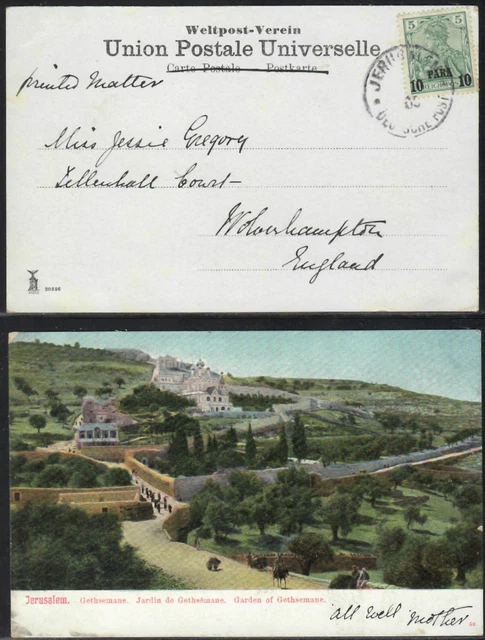 Weltpost-Verein
Union Postale Universelle
Carte Postale Postkarte
5 5
10 PARA 10
JERUSALEM
DEUTSCHE POST
printed Matter
Miss Jessie Gregory
Tettenhall Court
Wolverhampton
England
Jerusalem. Gethsemane. Jardin de Gethsémane. Garden of Gethsemane.
all well mother